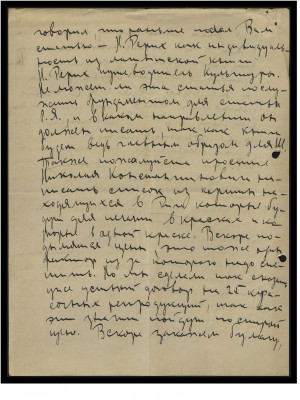 говорил, что раньше подал Вам
статью – Н. Рерих как индивидуаль-
ность из латвийской книги
Н. Рерих путеводитель Культуры.
Не может ли эта статья послу-
жить фундаментом для статьи
Р.Я. и в каком направлении он
должен писать, так как книга
будет ведь главным образом для Ш.
Также пожалуйста просите
Николая Константиновича на-
писать список из картин на-
ходящихся в Риге которые бу-
дут для печати в красках и ко-
торые в одной краске. Вскоре по-
дымаются цены это тоже при
фактор из за которого надо спе-
шить. Но мы сделали так скоро
уже устный договор на 25 кра-
сочных репродукций, так как
эти значит пойдут по старой
цене. Вскоре закажем бумагу,